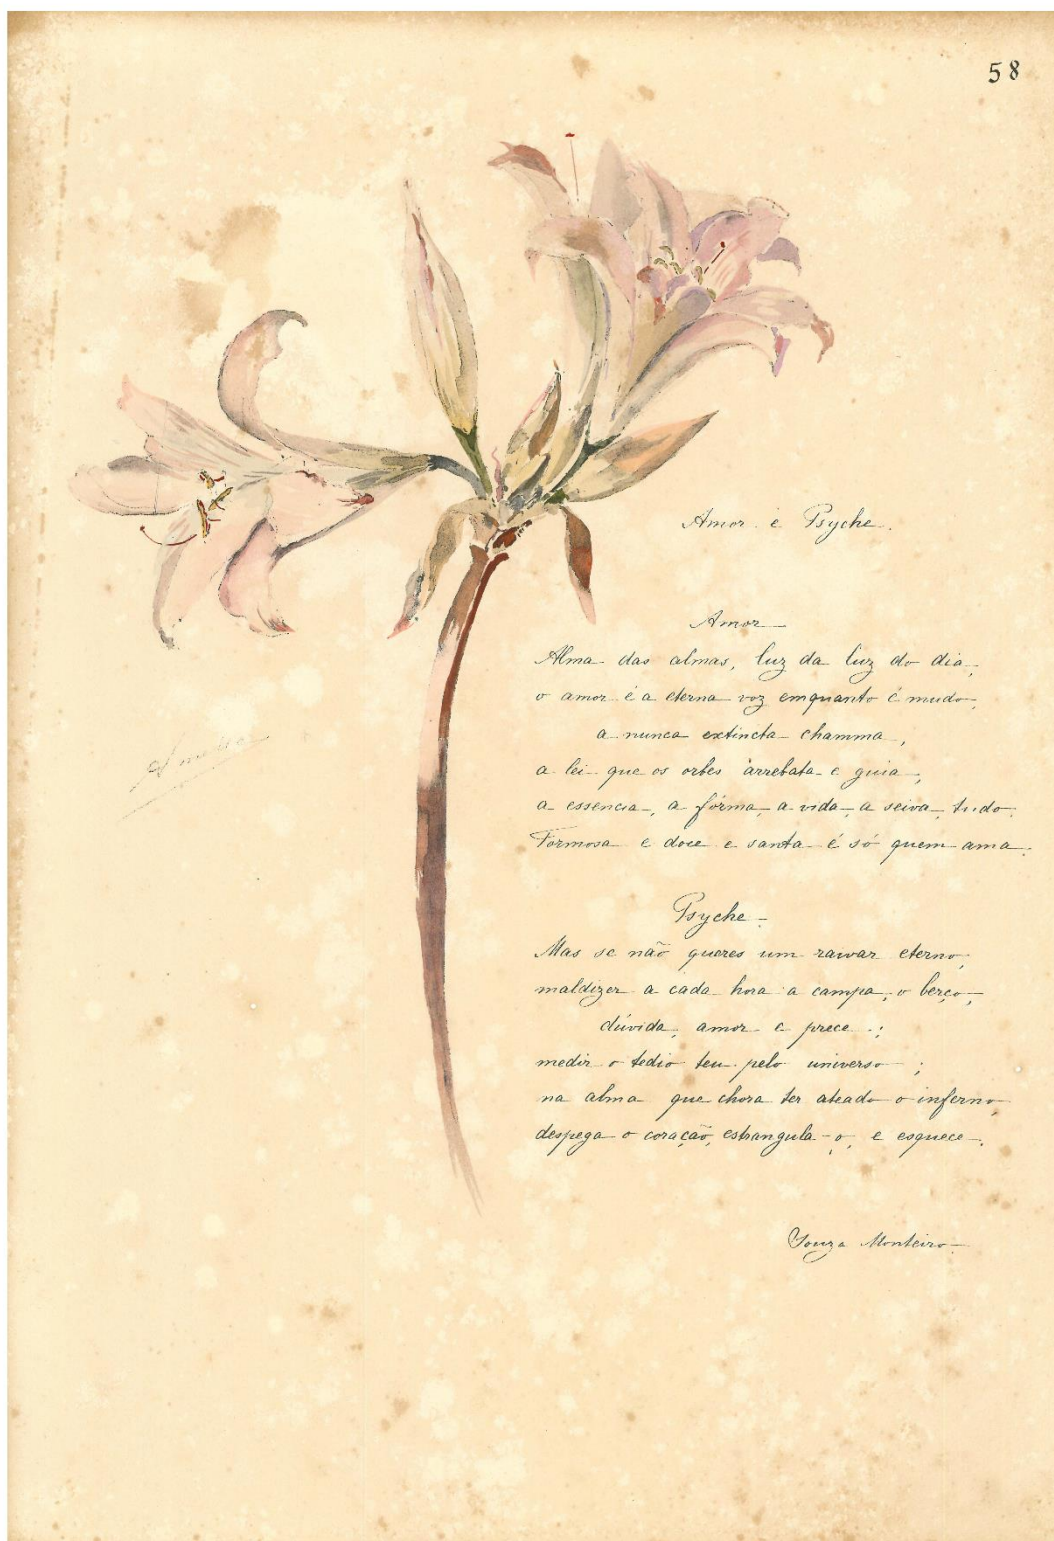 58
Amor e Psyche.
Amor
Alma das almas, luz da luz do dia,
o amor é a eterna voz emquanto é mudo,
a nunca extincta chamma,
a lei que os orbes arrebata e guia,
a essencia, a fórma, a vida, a seiva, tudo.
Formosa e doce e santa é só quem ama.
Psyche
Mas se não queres um raivar eterno,
maldizer a cada hora a campa, o berço,
dúvida, amor e prece;
medir o tedio teu pelo universo;
na alma que chora ter ateado o inferno,
despega o coração, estrangula-o, e esquece.
Souza Monteiro